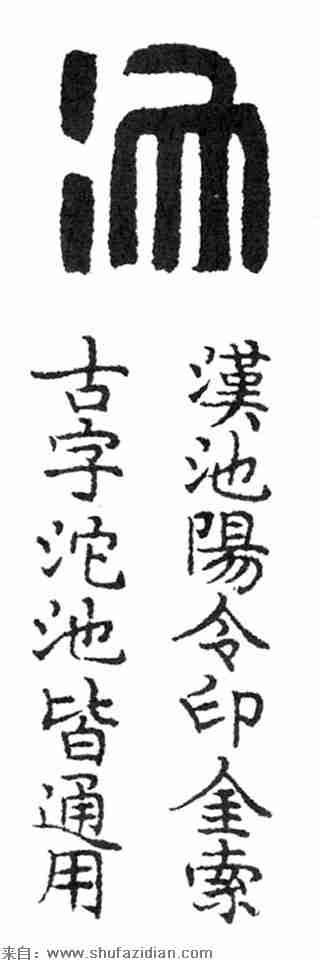 池
漢池陽令印金索
古字沱池皆通用
来自：www.shufazidian.com